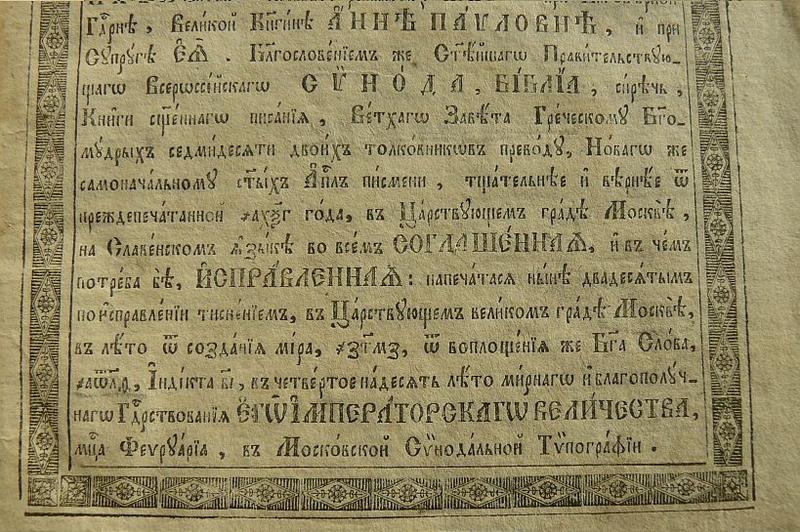 Гдⷭ҇рнѣ, Великой Кнѧгинѣ АННѢ ПАѴЛОВНѢ, и при
Сꙋпрꙋгѣ Єѧ̀. Благословенїемъ же Ст҃ѣйшагѡ Правительствꙋю-
щагѡ Всероссїйскагѡ СѴНОДА, БІБЛІА, сирѣчь,
Книги сщ҃еннагѡ писанїѧ, Ветхагѡ Завѣта Греческомꙋ Бг҃о-
мꙋдрыхъ седмидесѧти двоихъ толковникѡвъ преводꙋ, Новагѡ же
самоначальномꙋ ст҃ыхъ Ап҃лъ писмени, тщательнѣе и вѣрнѣе ѿ
преждепечатанной ҂ахѯг года, въ Царствꙋющемъ градѣ Москвѣ,
на Славенскомъ ꙗзыкѣ во всемъ СОГЛАШЕННАѦ, и въ чемъ
потреба бѣ, ИСПРАВЛЕННАѦ: напечатасѧ нынѣ двадесѧтымъ
по исправленїи тисненїемъ, въ Царствꙋющемъ великомъ градѣ Москвѣ,
въ лѣто ѿ созданїѧ мїра, ҂зтмз, ѿ воплощенїѧ же Бг҃а Слова,
Індікта ві, въ четвертое надесѧть лѣто мирнагѡ и благополꙋч-
нагѡ Гдⷭ҇рствованїѧ ЕГѠ ІМПЕРАТОРСКАГѠ ВЕЛИЧЕСТВА,
мц҃а Феврꙋарїа, въ Московской Сѵнодальной Тѵпографїи.